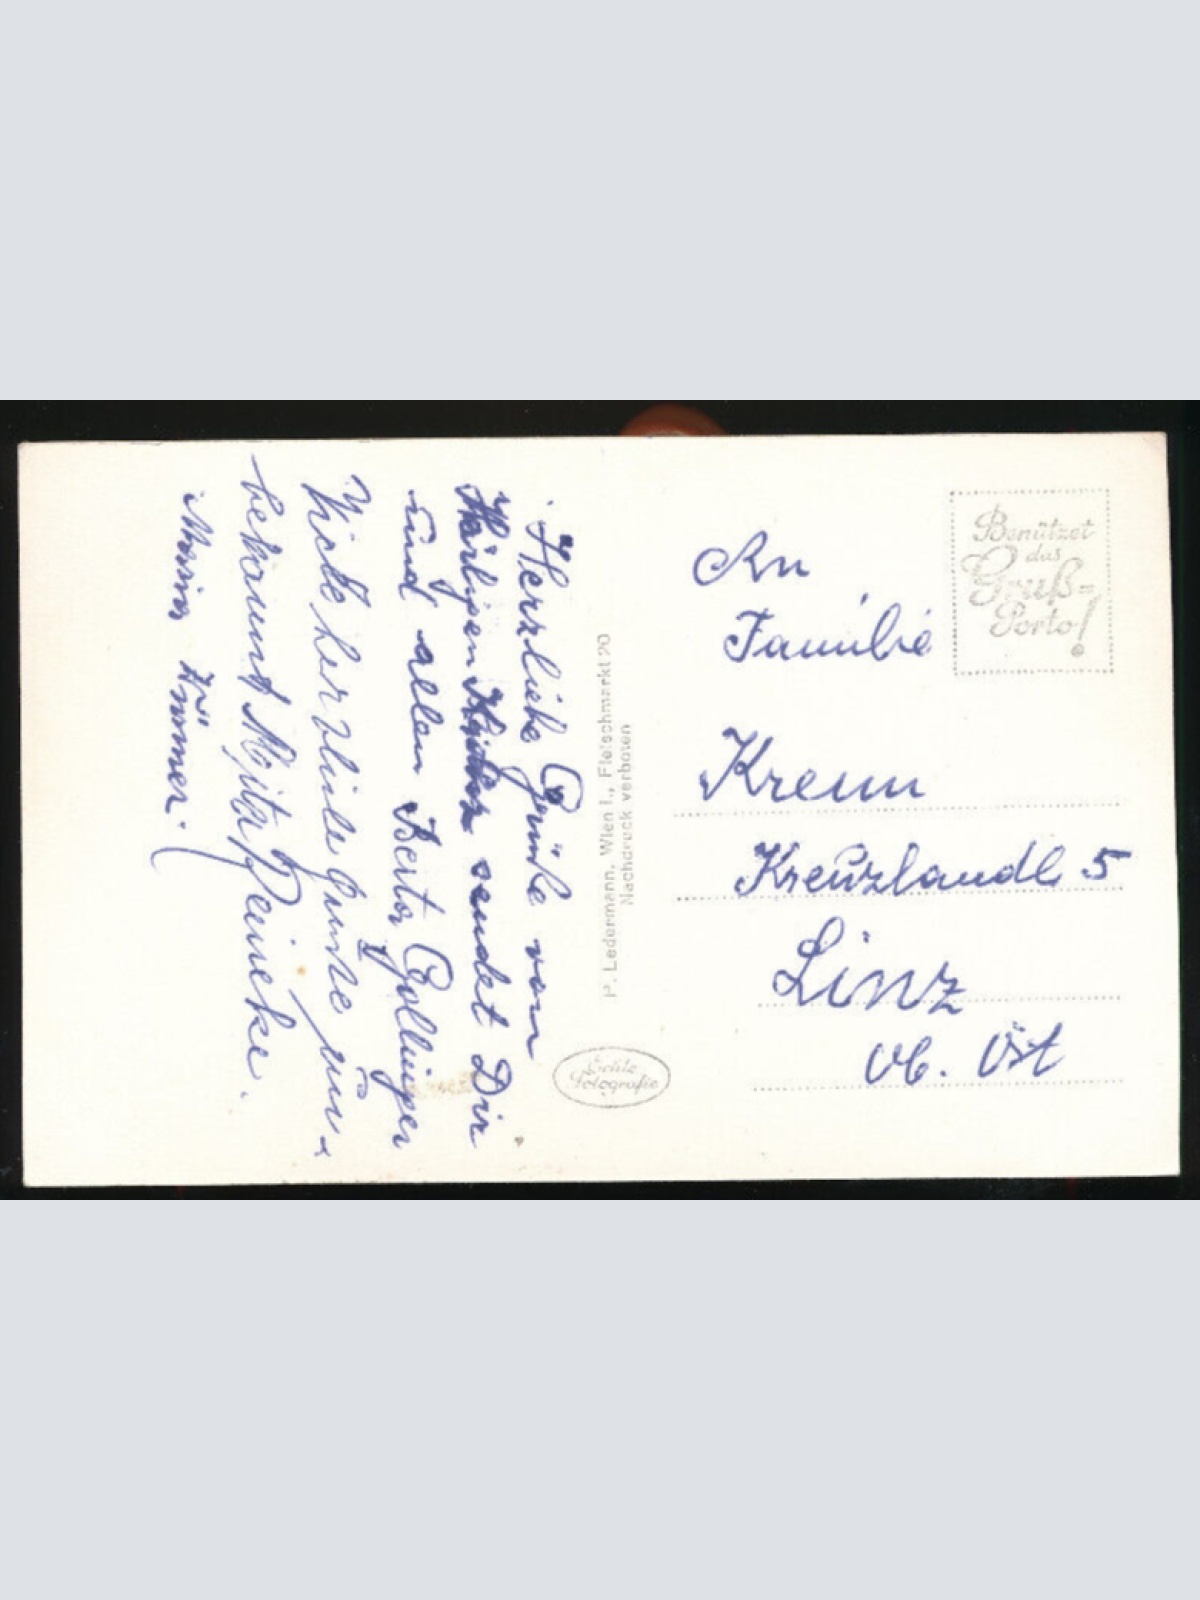 Herzliche Grüße vom
sendet Dir
und allen Berta Gollinger
herzliche Grüße un-
bekannt Reineke.
Maria
P. Ledermann, Wien I., Fleischmarkt 20
Nachdruck verboten
Echte
Fotografie
Benützet
das
Gruß=
Porto!
An
Familie
Krenn
Kreuzlandl 5
Linz
Ob. Öst